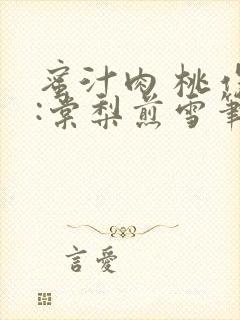 蜜汁肉桃作
:棠梨煎雪筆
言愛